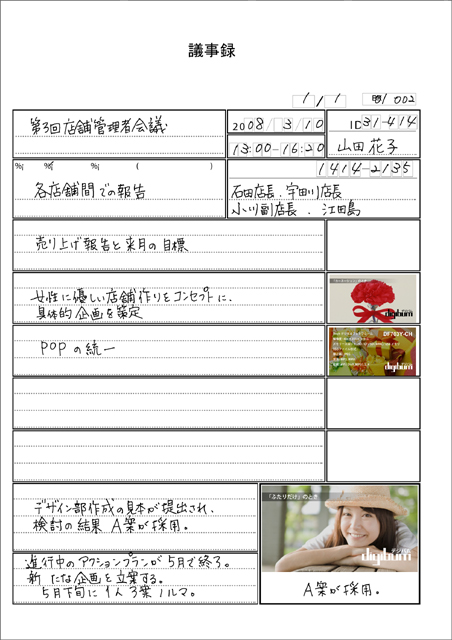 議事録
1/1 002
第3回店舗管理者会議
2008/3/10
ID31-414
13:00-16:20
山田 花子
1414-2135
各店舗間での報告
石田店長、宇田川店長
小川副店長、江田島
売り上げ報告と来月の目標
女性に優しい店舗作りをコンセプトに、
具体的企画を策定
digibum
POPの統一
DF705Y-CH
digibum
デザイン部作成の見本が提出され、
検討の結果 A案が採用。
「ふたりだけ」のとき
digibum
デジバム
進行中のアクションプランが5月で終了。
新たな企画を立案する。
5月下旬に1人3案ノルマ。
A案が採用。